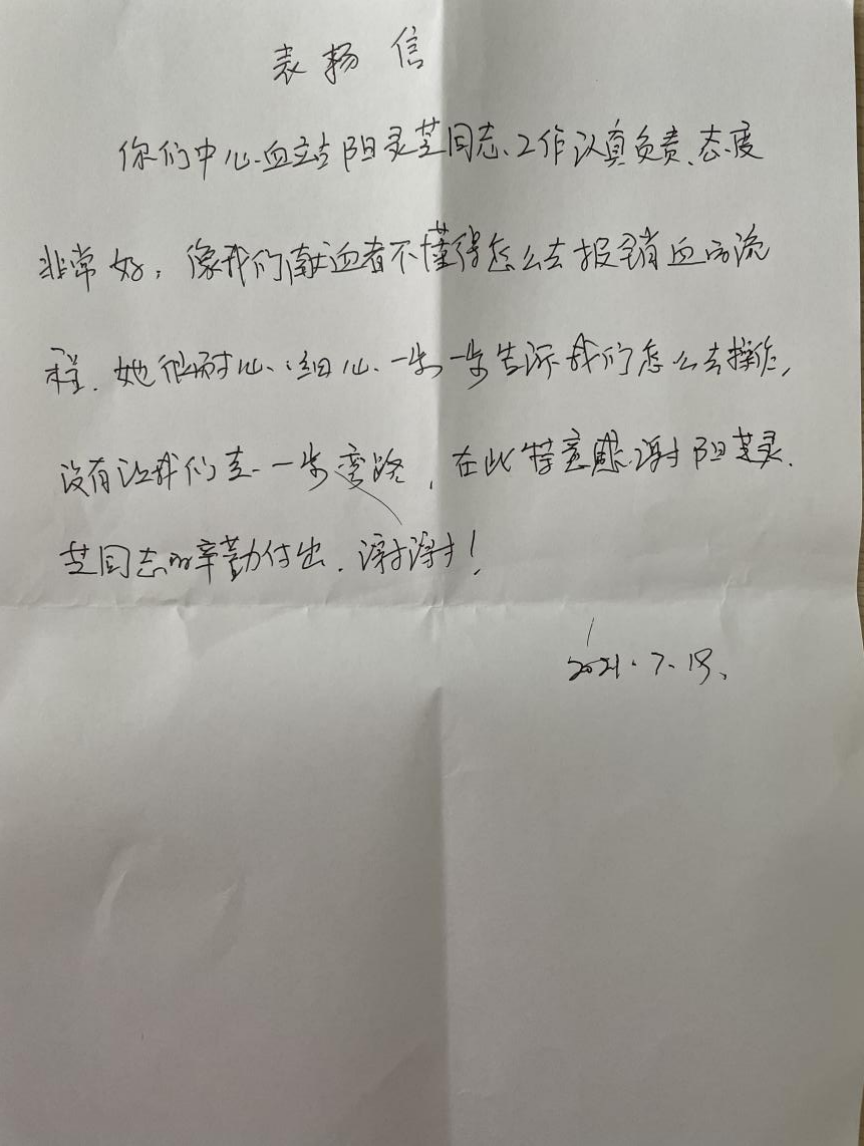 表扬信
你们中心血站阳灵芝同志、工作认真负责、态度
非常好，像我们献血者不懂得怎么去报销血的流
程．她很耐心、细心、一步一步告诉我们怎么去操作,
没有让我们走一步弯路，在此特意感谢阳芝灵．
芝同志的辛勤付出．谢谢！
2021.7.19、